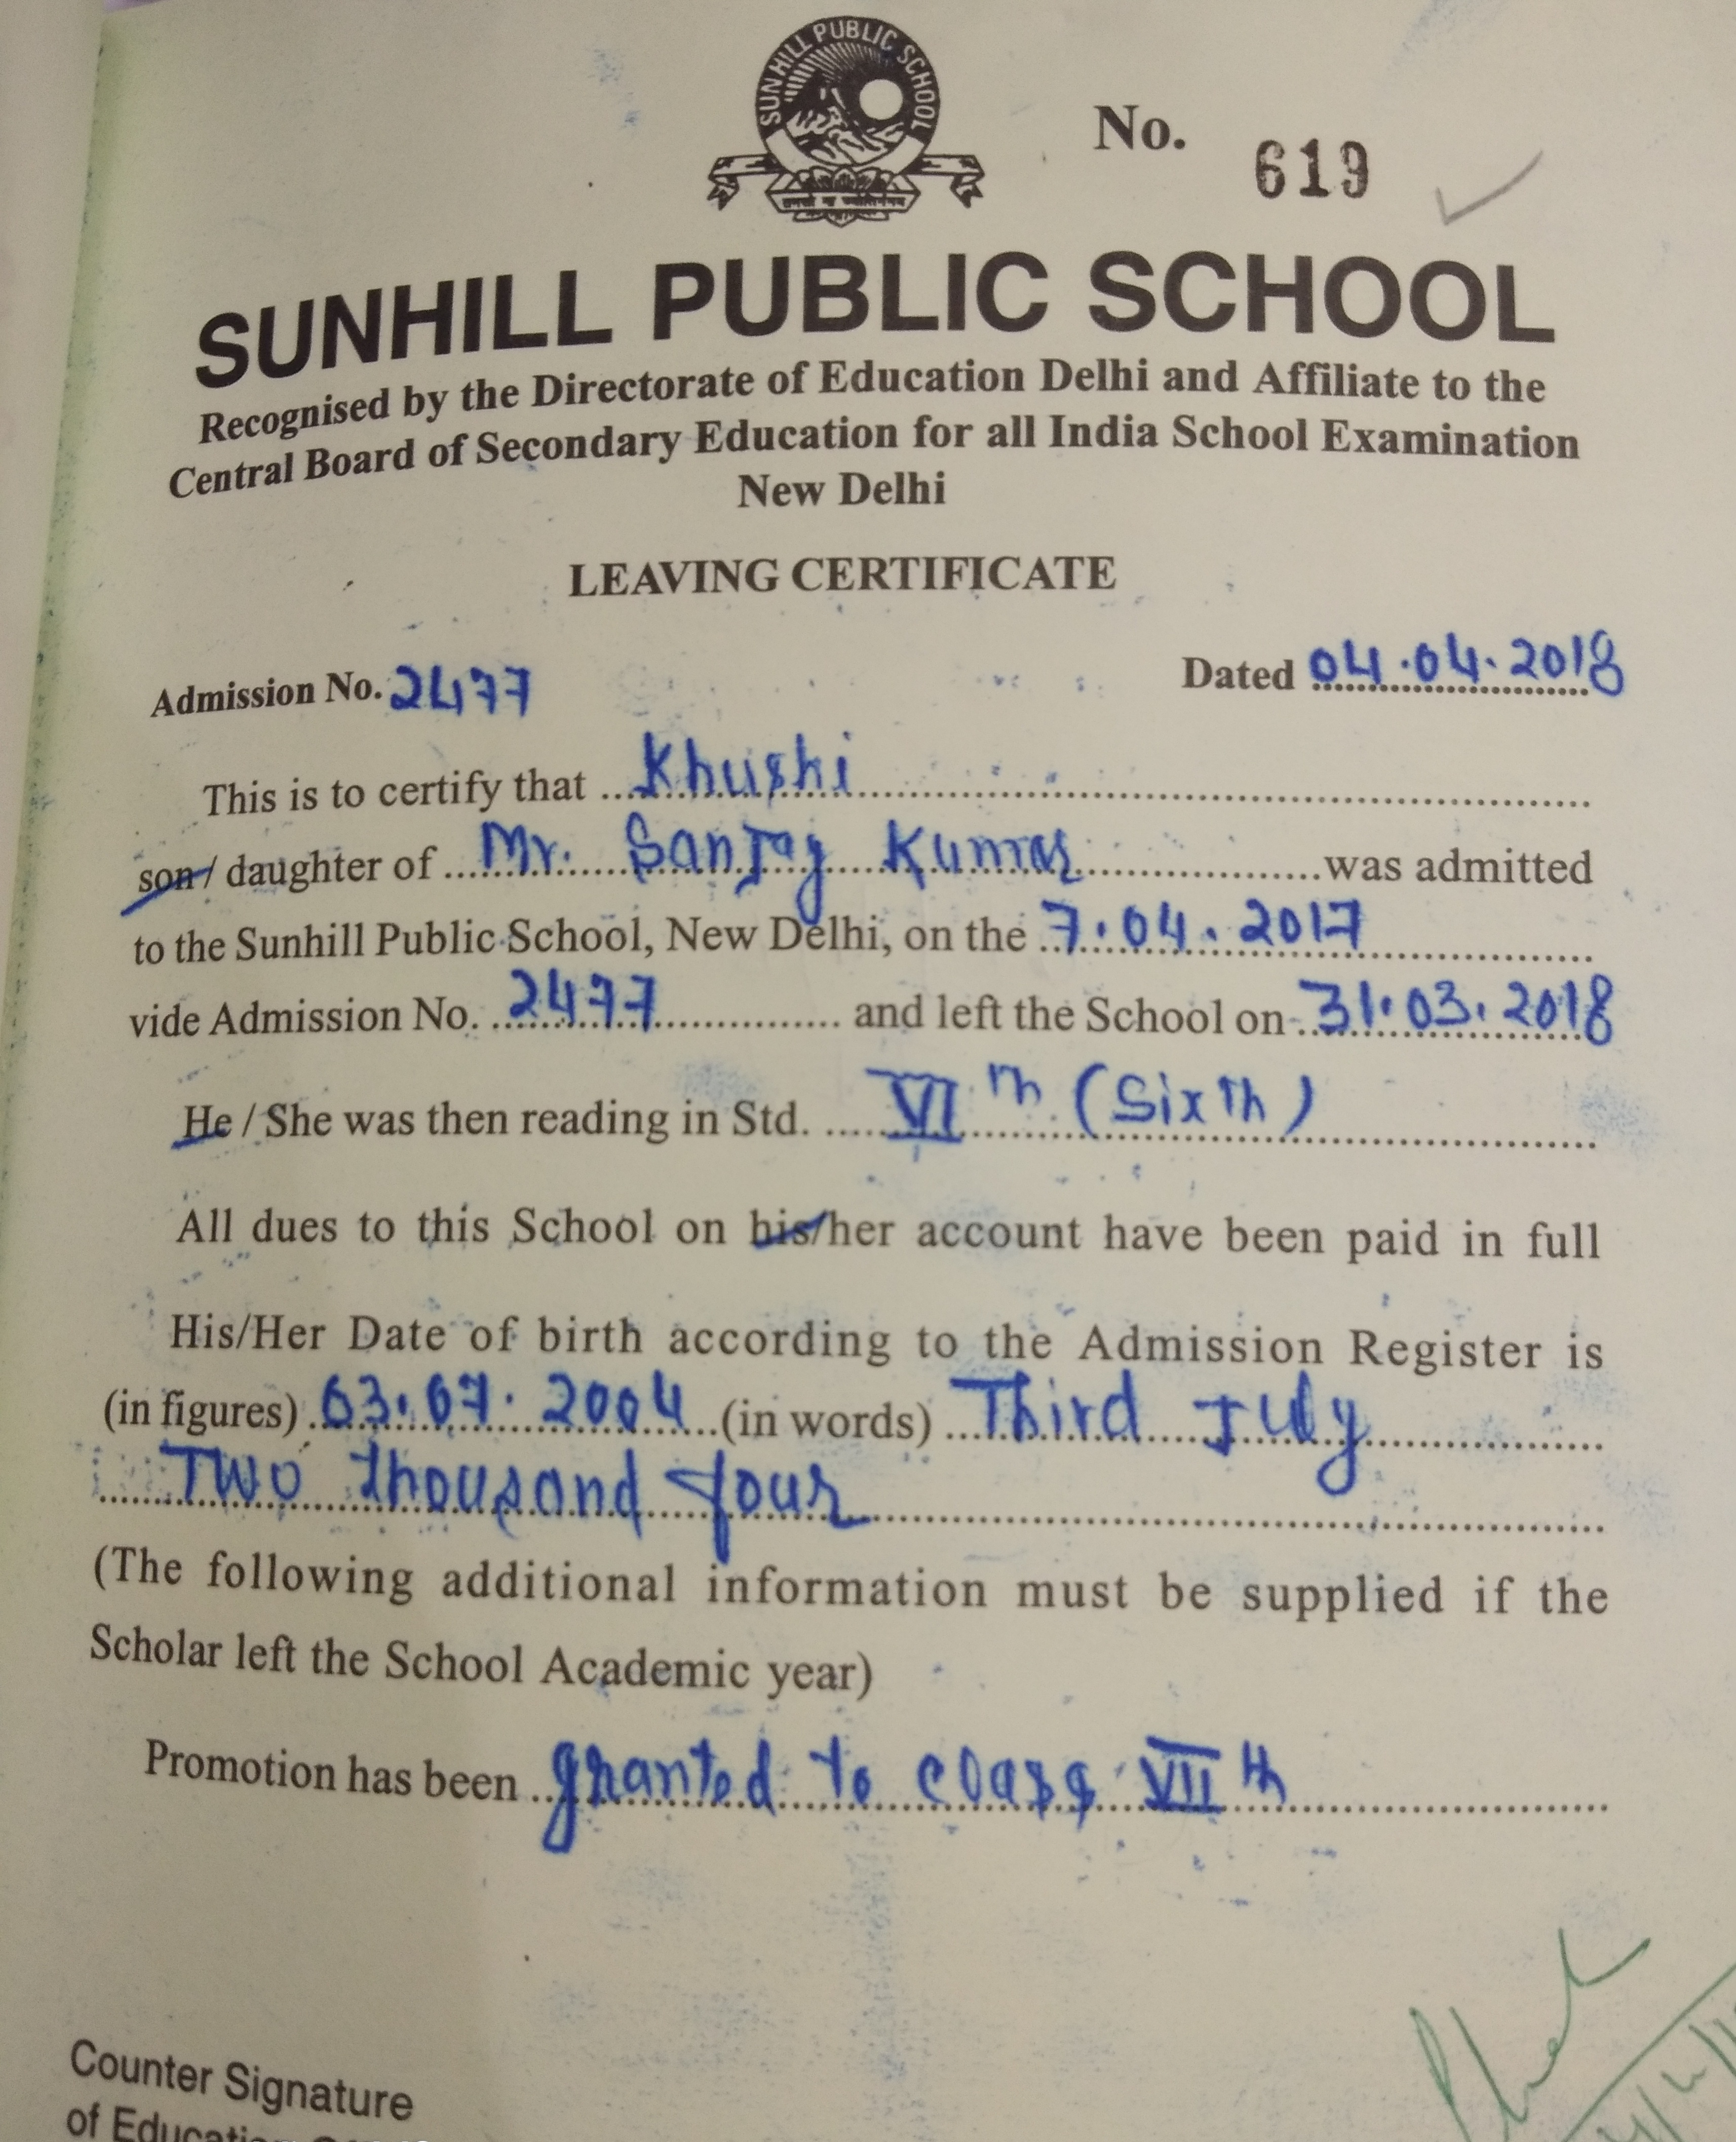 SUNHILL PUBLIC SCHOOL
No. 619
SUNHILL PUBLIC SCHOOL
Recognised by the Directorate of Education Delhi and Affiliate to the
Central Board of Secondary Education for all India School Examination
New Delhi
LEAVING CERTIFICATE
Admission No. 2477 Dated 04.04.2018
This is to certify that Khushi
son / daughter of Mr. Sanjay Kumar was admitted
to the Sunhill Public School, New Delhi, on the 7.04.2017
vide Admission No. 2477 and left the School on 31.03.2018
He / She was then reading in Std. VIth (Sixth)
All dues to this School on his/her account have been paid in full
His/Her Date of birth according to the Admission Register is
(in figures) 03.07.2004 (in words) Third July
Two thousand four
(The following additional information must be supplied if the
Scholar left the School Academic year)
Promotion has been granted to class VIIth
Counter Signature
of